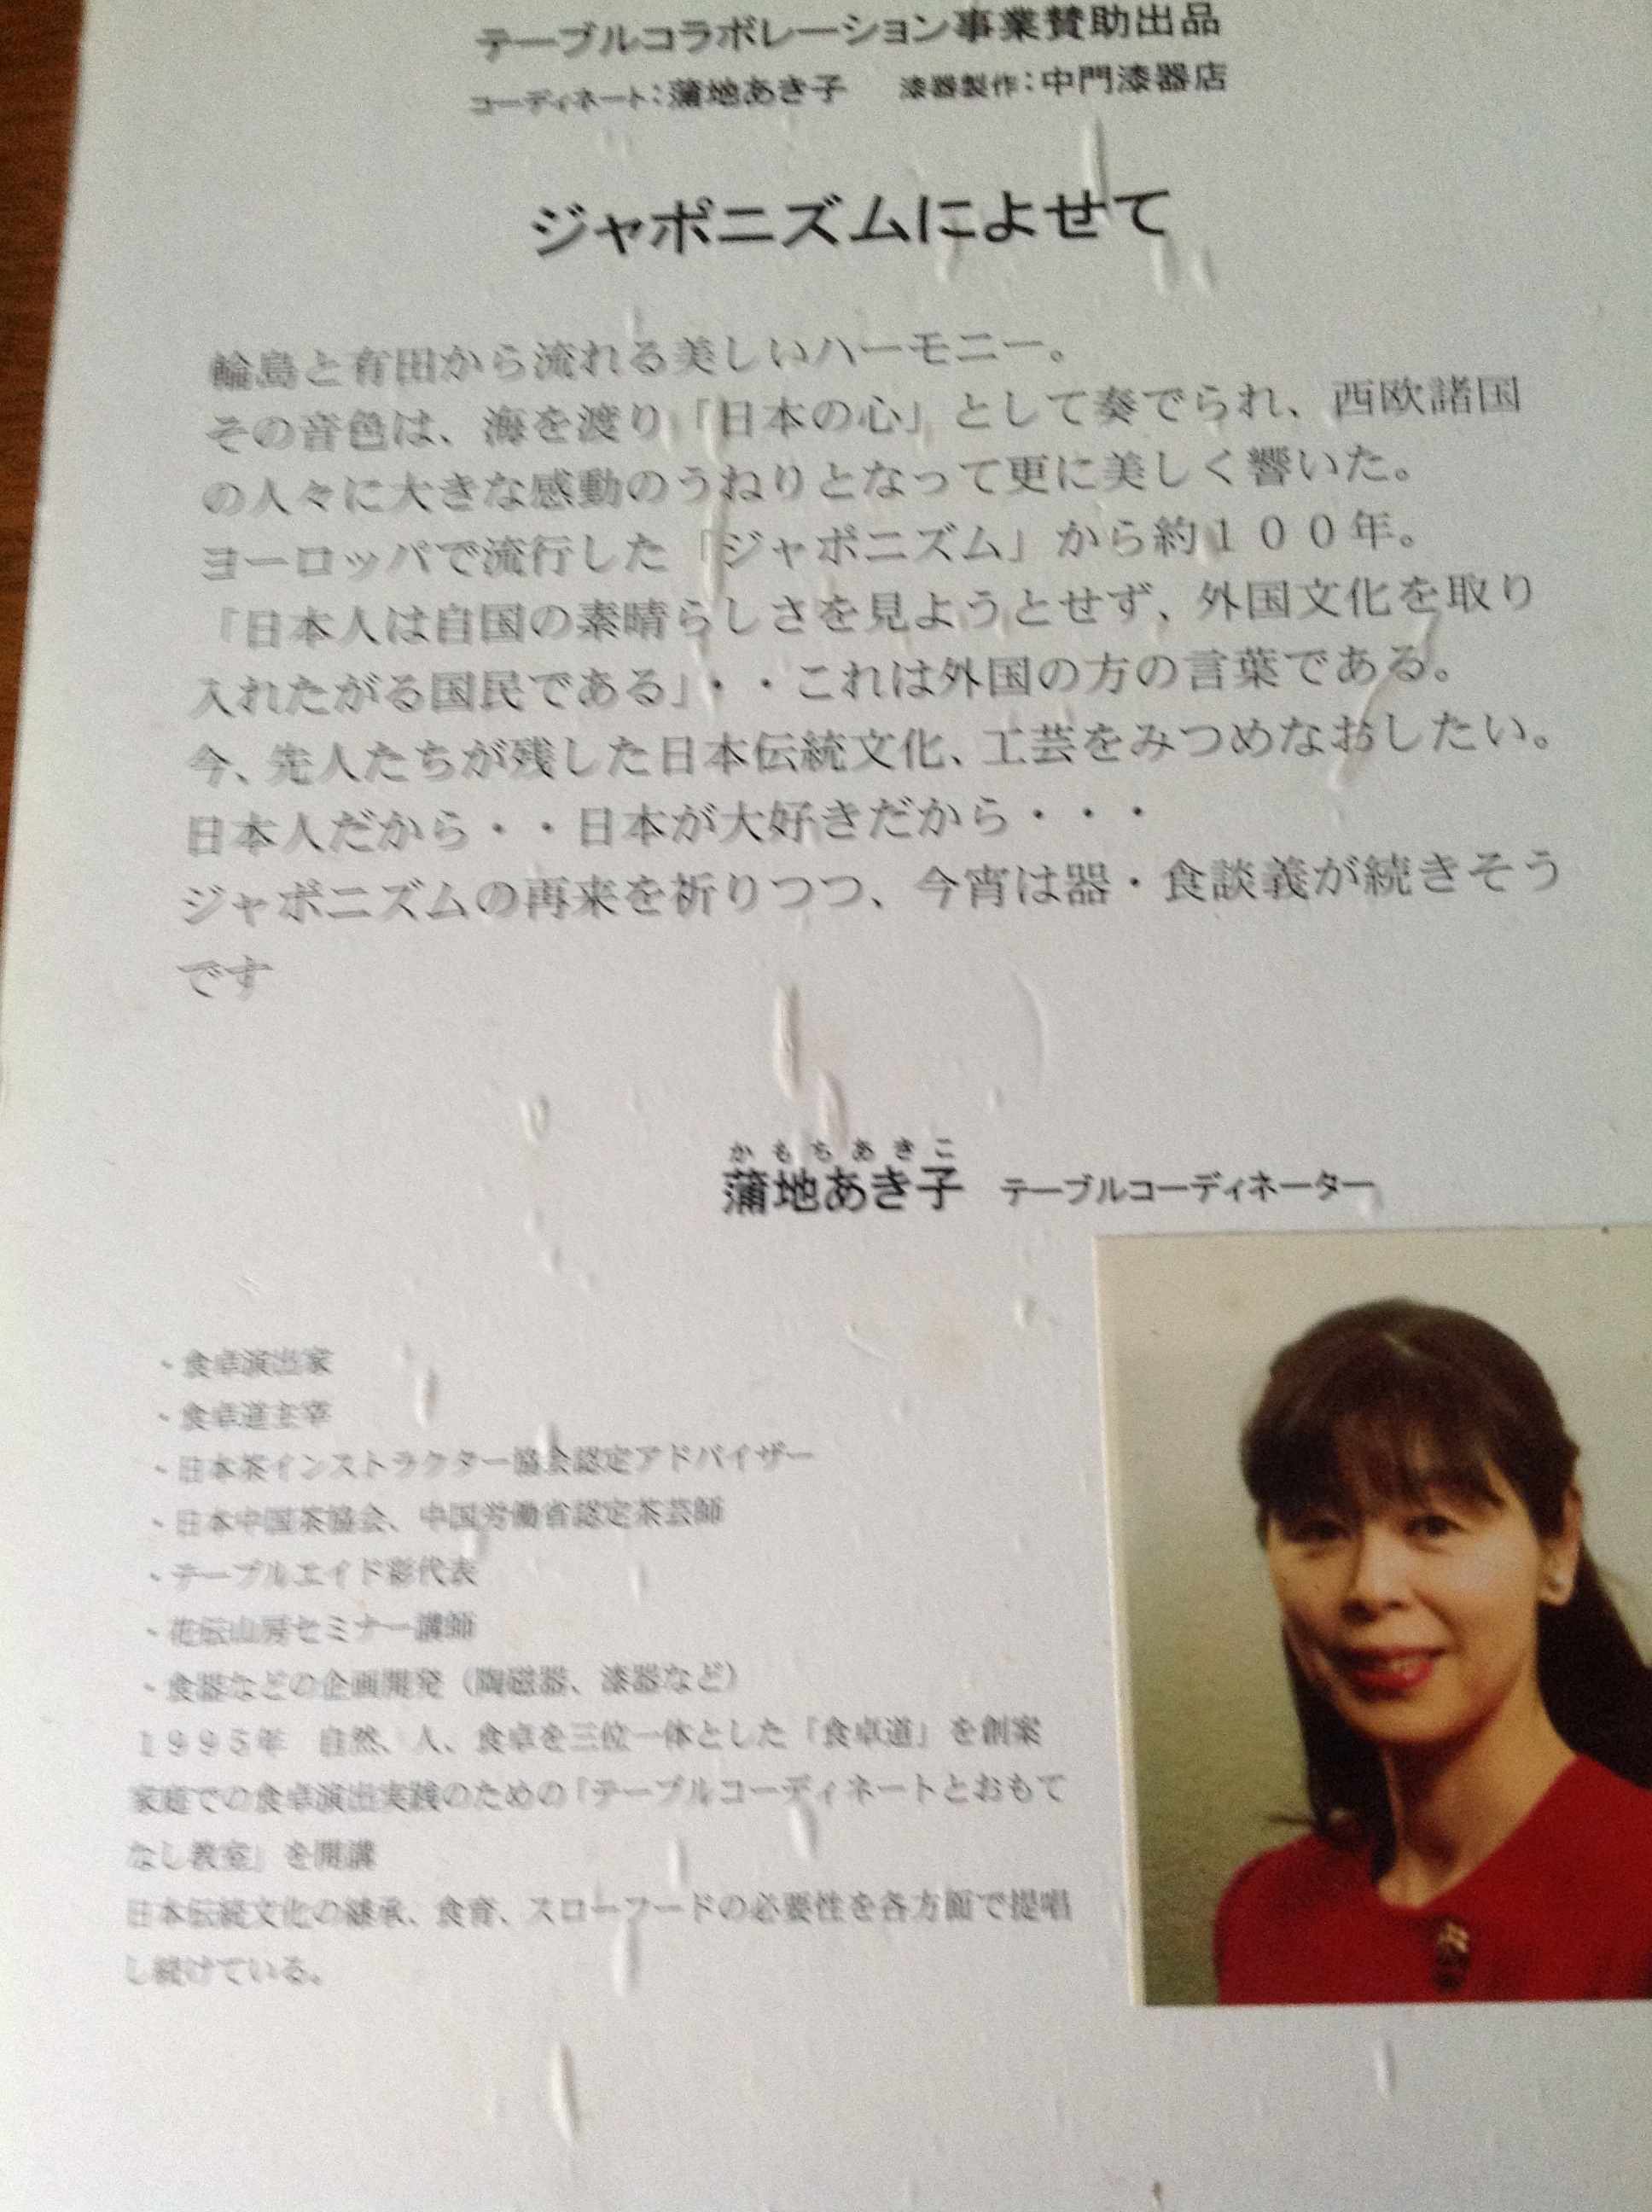 テーブルコラボレーション事業賛助出品
コーディネート：蒲地あき子　漆器製作：中門漆器店
ジャポニズムによせて
輪島と有田から流れる美しいハーモニー。
その音色は、海を渡り「日本の心」として奏でられ、西欧諸国
の人々に大きな感動のうねりとなって更に美しく響いた。
ヨーロッパで流行した「ジャポニズム」から約１００年。
「日本人は自国の素晴らしさを見ようとせず、外国文化を取り
入れたがる国民である」・・これは外国の方の言葉である。
今、先人たちが残した日本伝統文化、工芸をみつめなおしたい。
日本人だから・・日本が大好きだから・・・
ジャポニズムの再来を祈りつつ、今宵は器・食談義が続きそう
です
かもちあきこ
蒲地あき子　テーブルコーディネーター
・食卓演出家
・食卓道主宰
・日本茶インストラクター協会認定アドバイザー
・日本中国茶協会、中国労働省認定茶芸師
・テーブルエイド彩代表
・花伝山房セミナー講師
・食器などの企画開発（陶磁器、漆器など）
１９９５年　自然、人、食卓を三位一体とした「食卓道」を創案
家庭での食卓演出実践のための「テーブルコーディネートとおもて
なし教室」を開講
日本伝統文化の継承、食育、スローフードの必要性を各方面で提唱
し続けている。